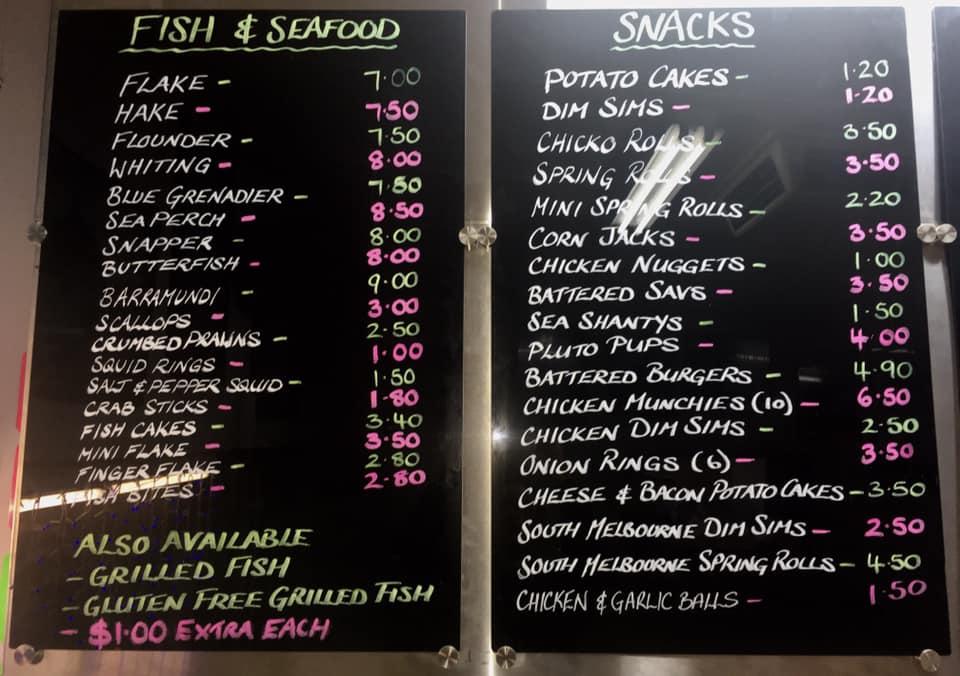 FISH & SEAFOOD
FLAKE - 7.00
HAKE - 7.50
FLOUNDER - 7.50
WHITING - 8.00
BLUE GRENADIER - 7.50
SEA PERCH - 8.50
SNAPPER - 8.00
BUTTERFISH - 8.00
BARRAMUNDI - 9.00
SCALLOPS - 3.00
CRUMBED PRAWNS - 2.50
SQUID RINGS - 1.00
SALT & PEPPER SQUID - 1.50
CRAB STICKS - 1.80
FISH CAKES - 3.40
MINI FLAKE - 3.50
FINGER FLAKE - 2.80
FISH BITES - 2.80
ALSO AVAILABLE
- GRILLED FISH
- GLUTEN FREE GRILLED FISH
- $1.00 EXTRA EACH
SNACKS
POTATO CAKES - 1.20
DIM SIMS - 1.20
CHICKO ROLLS - 3.50
SPRING ROLLS - 3.50
MINI SPRING ROLLS - 2.20
CORN JACKS - 3.50
CHICKEN NUGGETS - 1.00
BATTERED SAVS - 3.50
SEA SHANTYS - 1.50
PLUTO PUPS - 4.00
BATTERED BURGERS - 4.90
CHICKEN MUNCHIES (10) - 6.50
CHICKEN DIM SIMS - 2.50
ONION RINGS (6) - 3.50
CHEESE & BACON POTATO CAKES - 3.50
SOUTH MELBOURNE DIM SIMS - 2.50
SOUTH MELBOURNE SPRING ROLLS - 4.50
CHICKEN & GARLIC BALLS - 1.50